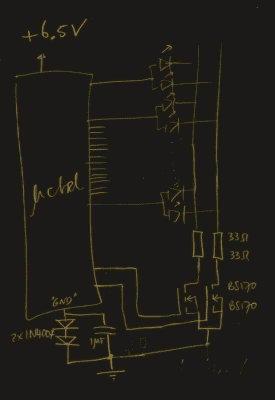 +6.5V
33Ω
33Ω
BS170
BS170
"GND"
2x1N4007
1µF